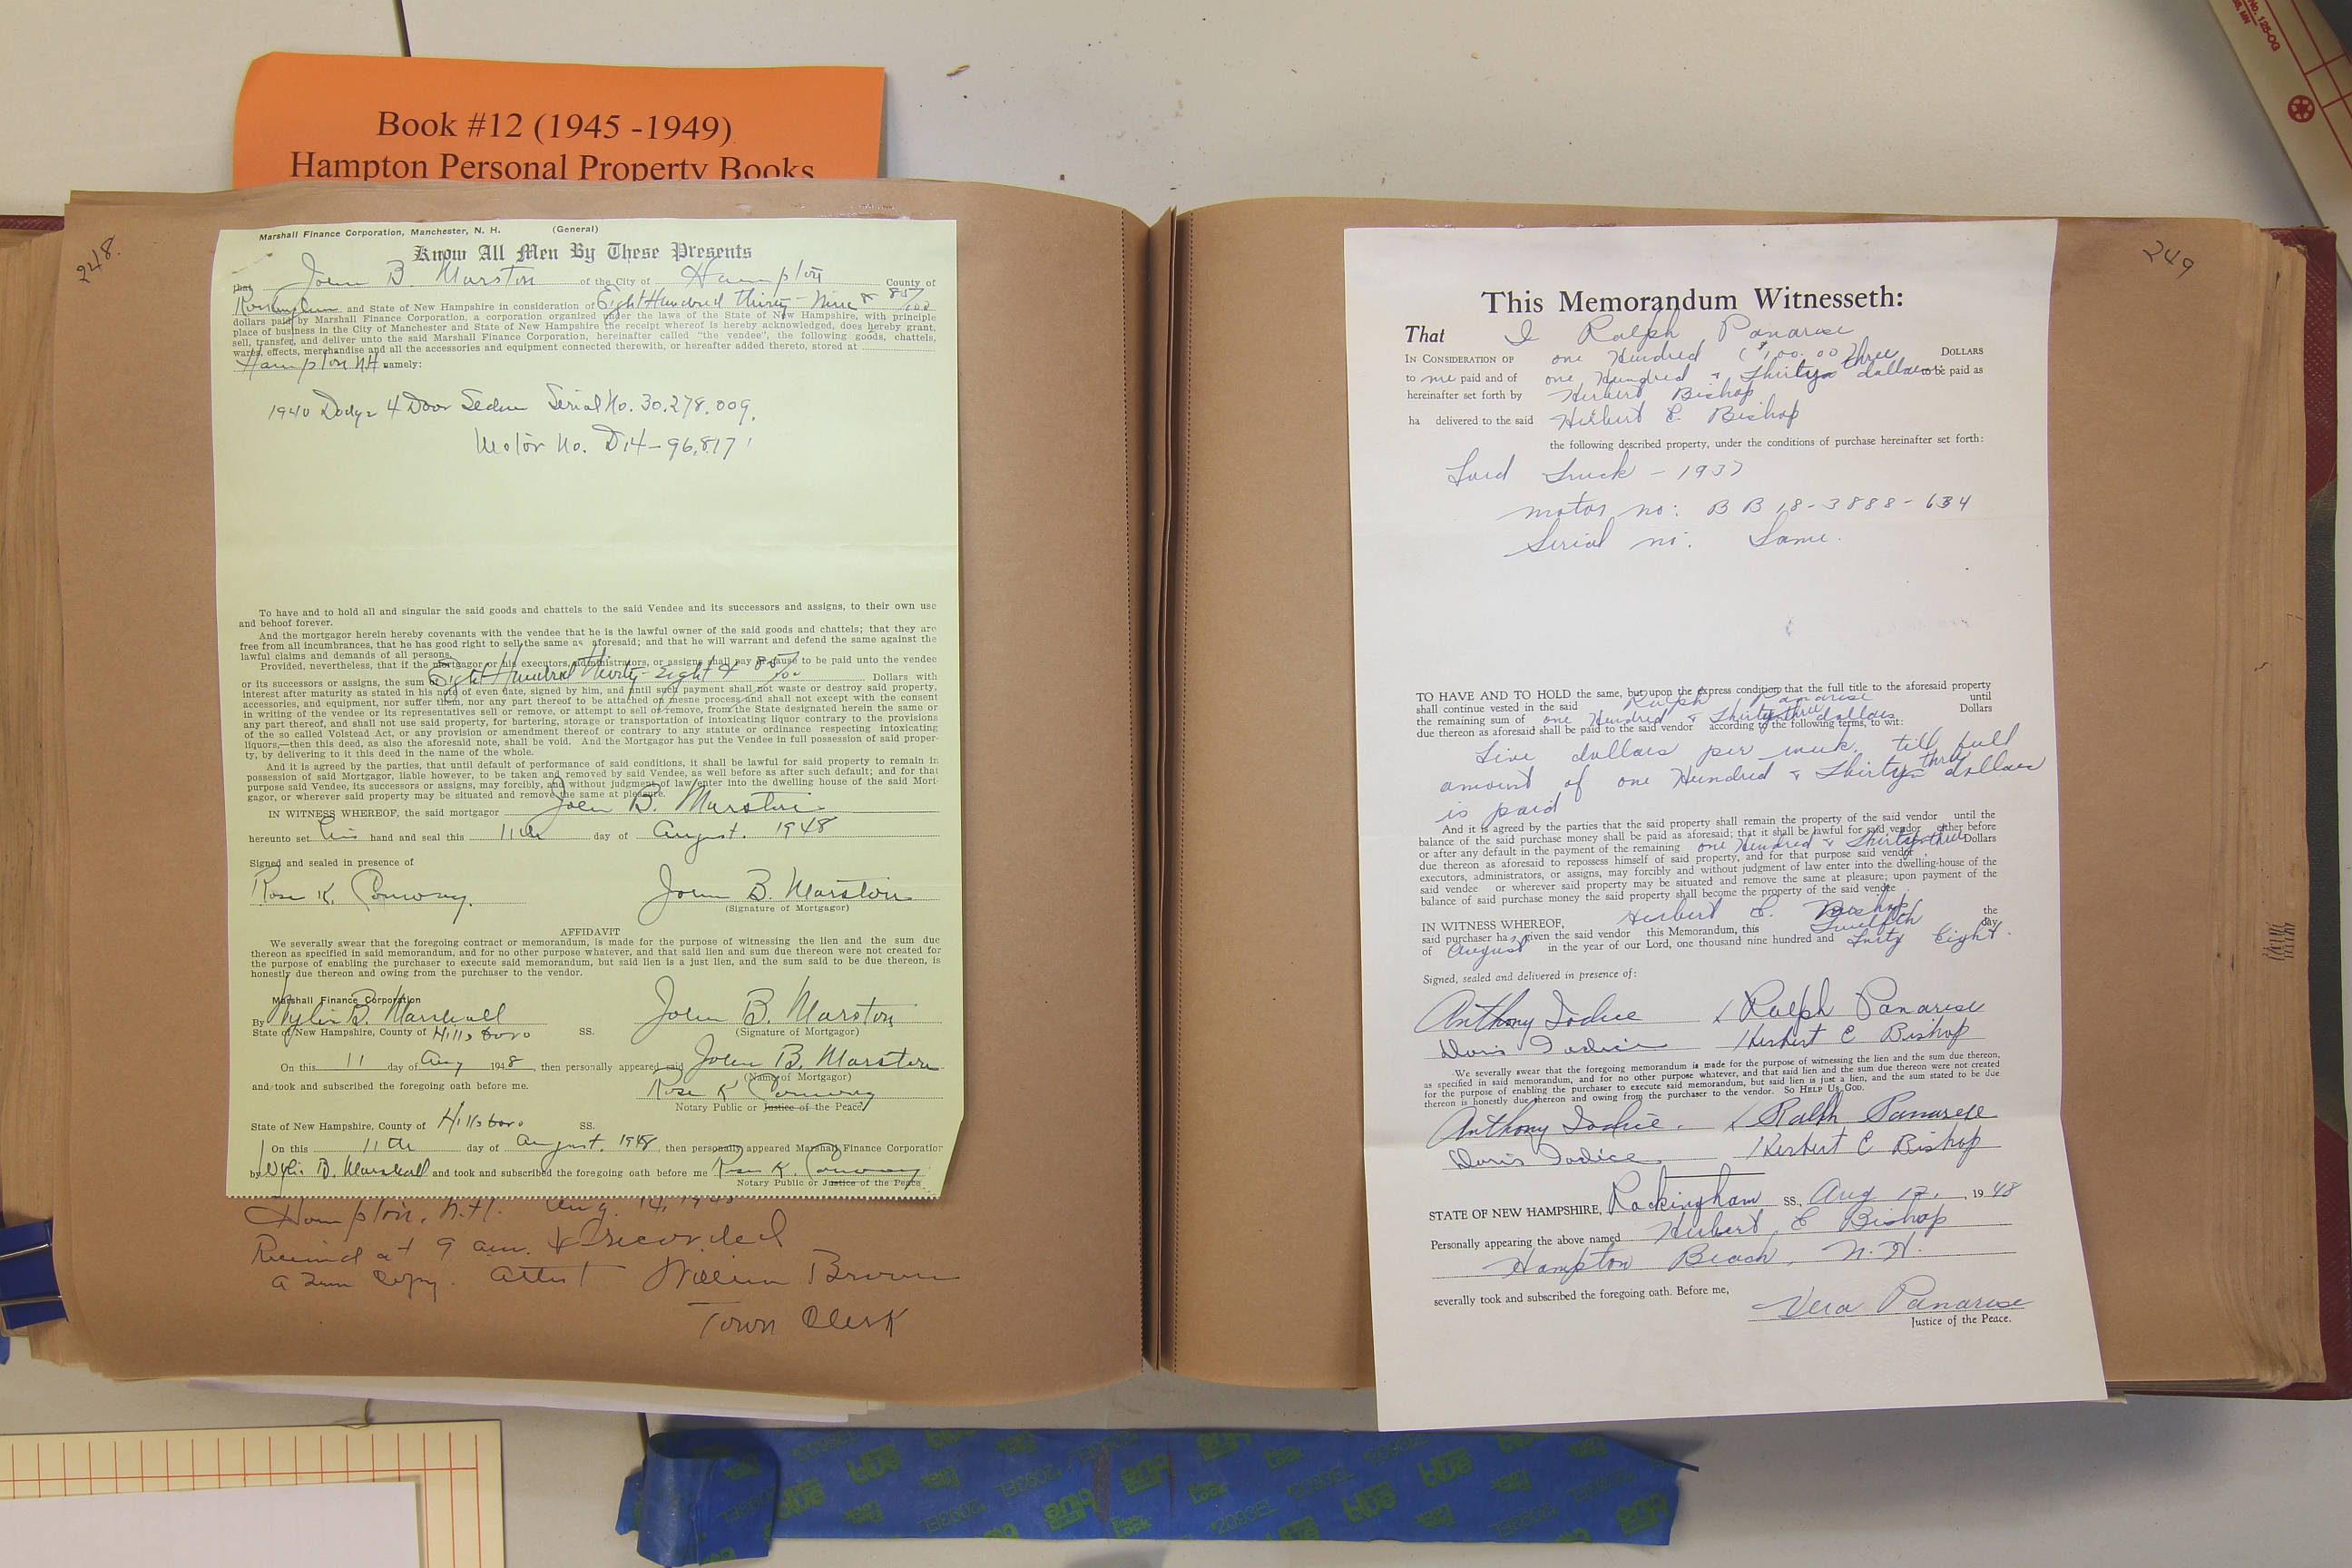 Book #12 (1945 -1949)
Hampton Personal Property Books
248.
Marshall Finance Corporation, Manchester, N. H. (General)
Know All Men By These Presents
that John B. Marston of the City of Hampton County of
Rockingham and State of New Hampshire in consideration of Eight Hundred thirty-Nine & 85/100
dollars paid by Marshall Finance Corporation, a corporation organized under the laws of the State of New Hampshire, with principle
place of business in the City of Manchester and State of New Hampshire the receipt whereof is hereby acknowledged, does hereby grant,
sell, transfer, and deliver unto the said Marshall Finance Corporation, hereinafter called "the vendee", the following goods, chattels,
wares, effects, merchandise and all the accessories and equipment connected therewith, or hereafter added thereto, stored at
Hampton NH namely:
1940 Dodge 4 Door Sedan Serial No. 30,278,009,
Motor No. D14-96,817
To have and to hold all and singular the said goods and chattels to the said Vendee and its successors and assigns, to their own use
and behoof forever.
And the mortgagor herein hereby covenants with the vendee that he is the lawful owner of the said goods and chattels; that they are
free from all incumbrances, that he has good right to sell the same as aforesaid; and that he will warrant and defend the same against the
lawful claims and demands of all persons.
Provided, nevertheless, that if the mortgagor or his executors, administrators, or assigns shall pay or cause to be paid unto the vendee
or its successors or assigns, the sum of Eight Hundred thirty-Eight & 85/100 Dollars with
interest after maturity as stated in his note of even date, signed by him, and until such payment shall not waste or destroy said property,
accessories, and equipment, nor suffer them, nor any part thereof to be attached on mesne process and shall not except with the consent
in writing of the vendee or its representatives sell or remove, or attempt to sell or remove, from the State designated herein the same or
any part thereof, and shall not use said property, for bartering, storage or transportation of intoxicating liquor contrary to the provisions
of the so called Volstead Act, or any provision or amendment thereof or contrary to any statute or ordinance respecting intoxicating
liquors,—then this deed, as also the aforesaid note, shall be void. And the Mortgagor has put the Vendee in full possession of said proper-
ty, by delivering to it this deed in the name of the whole.
And it is agreed by the parties, that until default of performance of said conditions, it shall be lawful for said property to remain in
possession of said Mortgagor, liable however, to be taken and removed by said Vendee, as well before as after such default; and for that
purpose said Vendee, its successors or assigns, may forcibly, and without judgment of law enter into the dwelling house of the said Mort-
gagor, or wherever said property may be situated and remove the same at pleasure.
IN WITNESS WHEREOF, the said mortgagor John B. Marston
hereunto set his hand and seal this 11th day of August. 1948
Signed and sealed in presence of
Rose K. Conway. John B. Marston
(Signature of Mortgagor)
AFFIDAVIT
We severally swear that the foregoing contract or memorandum, is made for the purpose of witnessing the lien and the sum due
thereon as specified in said memorandum, and for no other purpose whatever, and that said lien and sum due thereon were not created for
the purpose of enabling the purchaser to execute said memorandum, but said lien is a just lien, and the sum said to be due thereon, is
honestly due thereon and owing from the purchaser to the vendor.
Marshall Finance Corporation
By Wylie B. Marshall John B. Marston
State of New Hampshire, County of Hillsboro SS. (Signature of Mortgagor)
On this 11 day of Aug 1948, then personally appeared said John B. Marston
(Name of Mortgagor)
and took and subscribed the foregoing oath before me. Rose K Conway
Notary Public or Justice of the Peace
State of New Hampshire, County of Hillsboro SS.
On this 11th day of August, 1948, then personally appeared Marshall Finance Corporation
by Wylie B. Marshall and took and subscribed the foregoing oath before me Rose K. Conway
Notary Public or Justice of the Peace
Hampton, N.H. Aug. 14, 1948
Received at 9 a.m. & recorded
a true copy. Attest William Brown
Town Clerk
249
This Memorandum Witnesseth:
That I Ralph Panarese
IN CONSIDERATION OF one Hundred ($100.00 Three DOLLARS
to me paid and of one Hundred & Thirty dollars to be paid as
hereinafter set forth by Herbert Bishop
ha delivered to the said Herbert E. Bishop
the following described property, under the conditions of purchase hereinafter set forth:
Ford Truck - 1937
motor no: BB 18-3888-634
Serial no: Same.
TO HAVE AND TO HOLD the same, but upon the express condition that the full title to the aforesaid property
shall continue vested in the said Ralph Panarese until
the remaining sum of one Hundred & Thirty-three dollars Dollars
due thereon as aforesaid shall be paid to the said vendor according to the following terms, to wit:
Five dollars per week, till full
amount of one Hundred & Thirty-three dollars
is paid
And it is agreed by the parties that the said property shall remain the property of the said vendor until the
balance of the said purchase money shall be paid as aforesaid; that it shall be lawful for said vendor either before
or after any default in the payment of the remaining one Hundred & Thirty-three Dollars
due thereon as aforesaid to repossess himself of said property, and for that purpose said vendor,
executors, administrators, or assigns, may forcibly and without judgment of law enter into the dwelling-house of the
said vendee or wherever said property may be situated and remove the same at pleasure; upon payment of the
balance of said purchase money the said property shall become the property of the said vendee
IN WITNESS WHEREOF, Herbert E. Bishop the
said purchaser has given the said vendor this Memorandum, this Twelfth day
of August in the year of our Lord, one thousand nine hundred and Forty Eight.
Signed, sealed and delivered in presence of:
Anthony Iodice x Ralph Panarese
Doris Iodice Herbert E Bishop
We severally swear that the foregoing memorandum is made for the purpose of witnessing the lien and the sum due thereon,
as specified in said memorandum, and for no other purpose whatever, and that said lien and the sum due thereon were not created
for the purpose of enabling the purchaser to execute said memorandum, but said lien is just a lien, and the sum stated to be due
thereon is honestly due thereon and owing from the purchaser to the vendor. SO HELP US GOD.
Anthony Iodice. x Ralph Panarese
Doris Iodice Herbert E Bishop
STATE OF NEW HAMPSHIRE, Rockingham SS., Aug. 12, 1948
Personally appearing the above named Herbert E Bishop
Hampton Beach, N.H.
severally took and subscribed the foregoing oath. Before me,
Vera Panarese
Justice of the Peace.